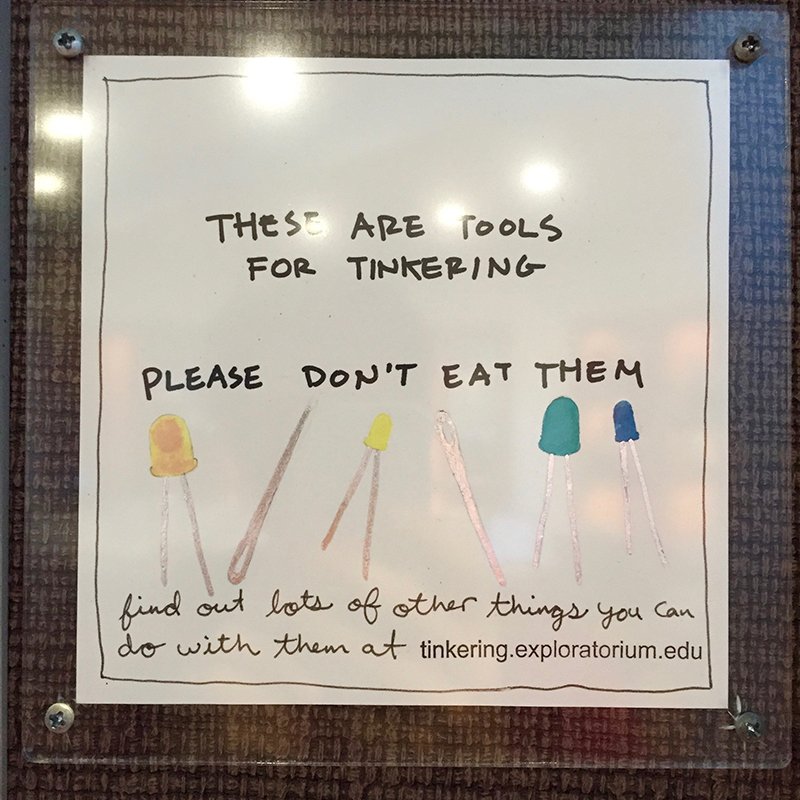 THESE ARE TOOLS
FOR TINKERING
PLEASE DON'T EAT THEM
find out lots of other things you can
do with them at tinkering.exploratorium.edu